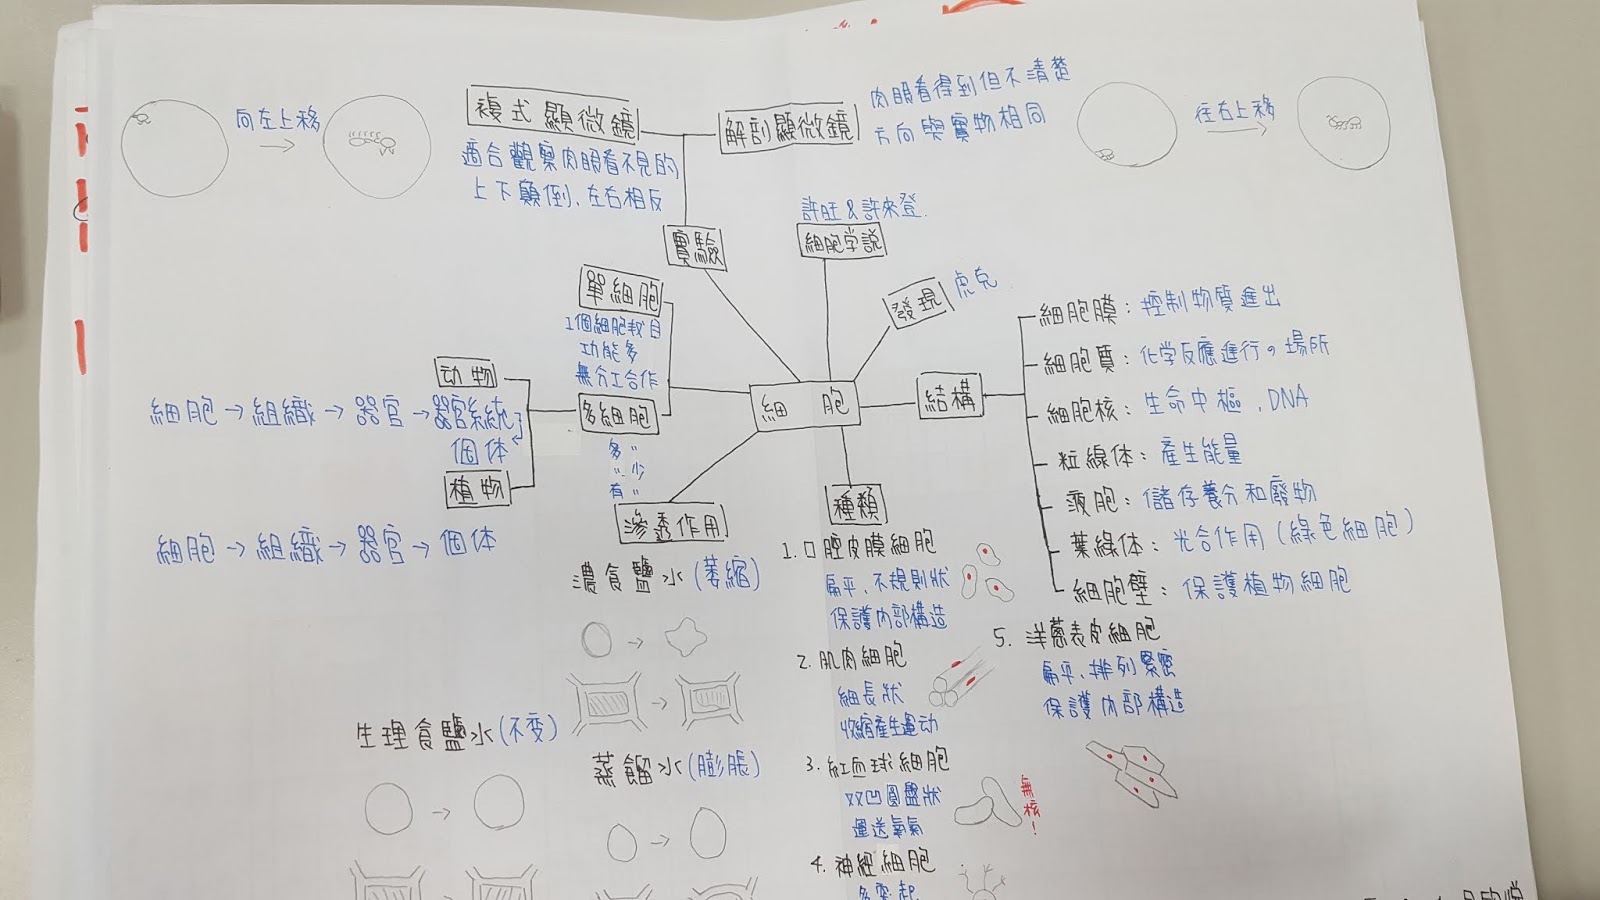 向左上移
複式顯微鏡
適合觀察肉眼看不見的
上下顛倒、左右相反
解剖顯微鏡
肉眼看得到但不清楚
方向與實物相同
往右上移
實驗
許旺&許來登
細胞学説
發現
虎克
單細胞
1個細胞
功能多
無分工合作
多細胞
多〃
〃少
有〃
动物
細胞→組織→器官→器官系統
個体
植物
細胞→組織→器官→個体
細胞
結構
細胞膜：控制物質進出
細胞質：化学反應進行の場所
細胞核：生命中樞、DNA
粒線体：產生能量
液胞：儲存養分和廢物
葉綠体：光合作用(綠色細胞)
細胞壁：保護植物細胞
滲透作用
濃食鹽水(萎縮)
生理食鹽水(不変)
蒸餾水(膨脹)
種類
1.口腔皮膜細胞
扁平、不規則狀
保護內部構造
2.肌肉細胞
細長狀
收縮產生運动
3.紅血球細胞
双凹圓盤狀
運送氧氣
無核!
4.神經細胞
多突起
5.洋蔥表皮細胞
扁平、排列緊密
保護內部構造